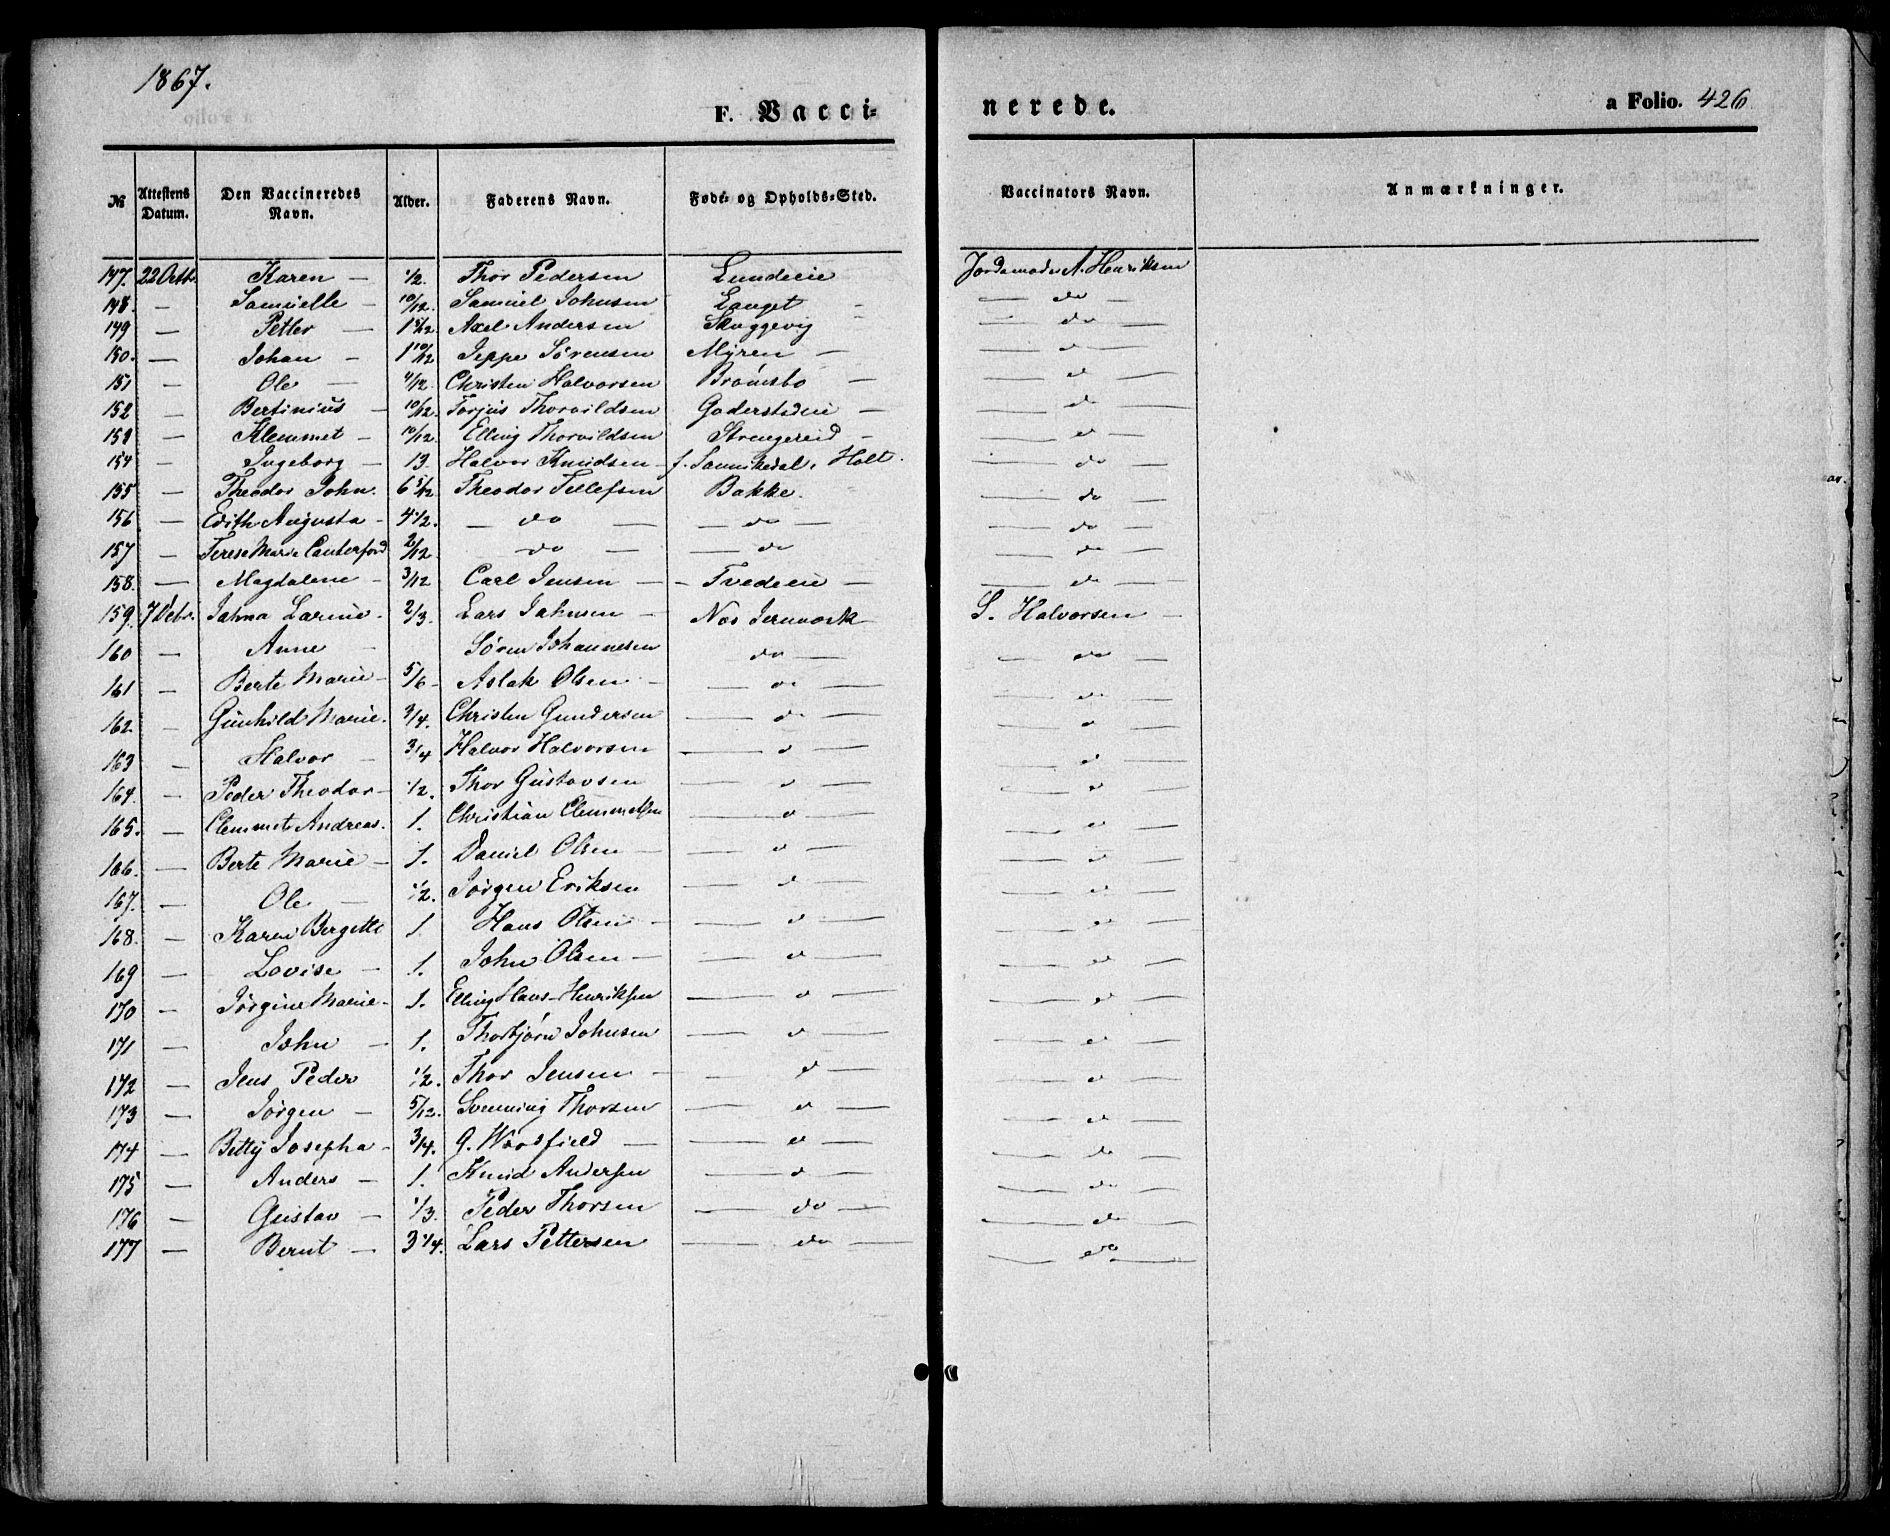 1867.
F. Vacci=
nerede.
a Folio. 426
№ Attestens Datum. Den Vaccineredes Navn. Alder. Faderens Navn. Føde- og Opholds-Sted. Vaccinators Navn. Anmærkninger.
147. 22 Octb. Karen — 1/2. Thor Pedersen Lundeeie Jordemoder A. Henriksen
148. — Samuelle — 10/12. Samuel Johnsen Langet — do —
149 — Petter — 1 5/12 Axel Andersen Skuggevig — do —
150. — Johan — 1 10/12 Jeppe Sørensen Myren — — do —
151 — Ole — 4/12. Christen Halvorsen Brømsbo — — d —
152 — Bertinius — 10/12. Torjus Thorvildsen Goderstedeie — — do —
153 — Klemmet — 10/12. Elling Thorvildsen Strengereid — — d —
154 — Ingeborg — 13. Halvor Knudsen — f. Sannikedal, Holt. — do —
155 — Theodor John. 6 5/12. Theodor Tellefsen Bakke. — do —
156 — Edith Augusta — 4 1/2. — do — — do — — do —
157 — Terese Marie Canterford 2/12 — do — — do — do —
158. — Magdalene — 3/12 Carl Jensen — — Tvedeeie — — do —
159. 7 Debr. Jahna Larine. 2/3. Lars Jahnsen — Næs Jernværk — S. Halvorsen —
160 — Anne — Søren Johannesen do — — do —
161 — Berte Marie — 5/6 — Aslak Olsen — — do — — do —
162. — Gunhild Marie. 3/4. Christen Gundersen — do — — d —
163 — Halvor — 3/4 Halvor Halvorsen — d — — d —
164. — Peder Theodor — 1/2. Thor Gustavsen — d — — d —
165. — Clemmet Andreas. 1. Christian Clemmetsen — d — — d —
166. — Berte Marie — 1. Daniel Olsen — — d — — d —
167. — Ole — 1/2. Jørgen Eriksen — d — — d —
168. — Karen Bergitte 1 Hans Olsen — — d — — d —
169 — Lovise — 1. John Olsen — — d — — d —
170 — Jørgine Marie — 1. Elling Hans Henriksen — d — — d —
171 — John — 1. Thorbjørn Johnsen — d — — d —
172 — Jens Peder 1/2. Thor Jensen — — d — — d —
173 — Jørgen — 5/12. Svenning Thorsen — d — — d —
174 — Betty Josepha — 3/4. G. Woodfield — — d — — do —
175 — Anders — 1. Knud Andersen — d — — do —
176 — Gustav — 1/3. Peder Thorsen — do — — d —
177 — Bernt — 3 1/4. Lars Pettersen — do — — do —